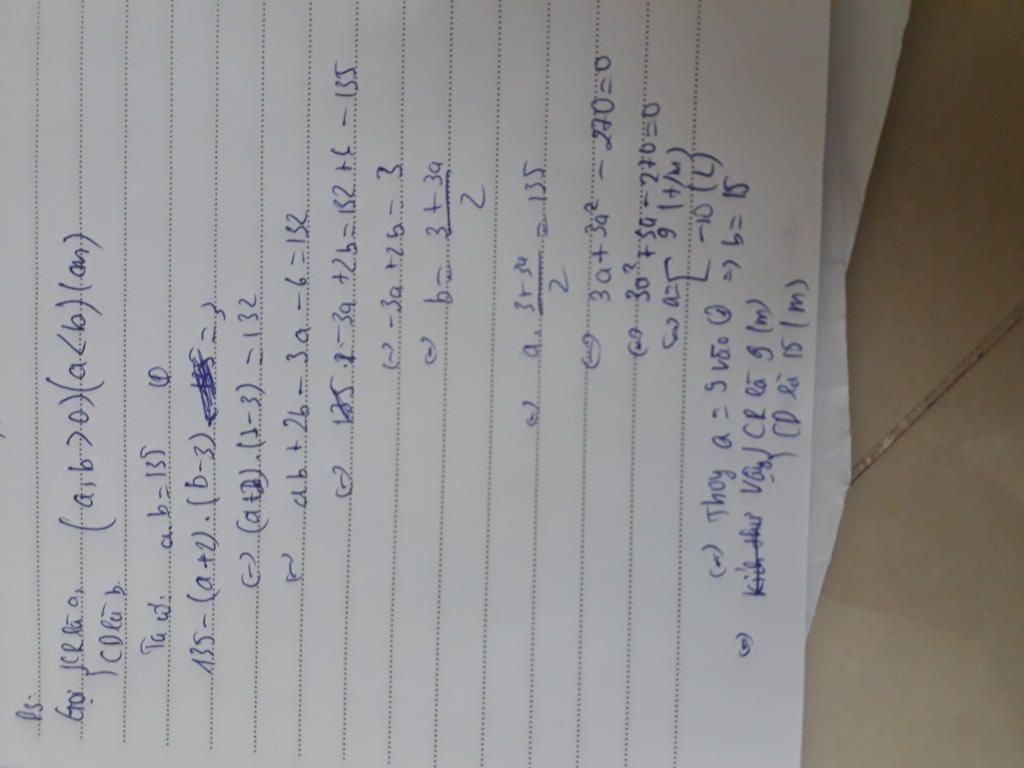 B3:
Gọi {CR là a,
CD là b (a, b > 0) (a < b) (cm)
Ta có: a.b = 135 (1)
135 - (a+2).(b-3) = 3
(=) (a+2).(b-3) = 132
(=) ab + 2b - 3a - 6 = 132
(=) 135 - 3a + 2b = 132 + 6 - 135
(=) -3a + 2b = 3
(=) b = 3+3a / 2
(=) a. 3+3a / 2 = 135
(=) 3a + 3a² - 270 = 0
(=) 3a² + 3a - 270 = 0
(=) a = [ 9 (t/m)
-10 (L)
(=) Thay a = 9 vào (1) => b = 15
(=) Vậy {CR là 9 (m)
CD là 15 (m)